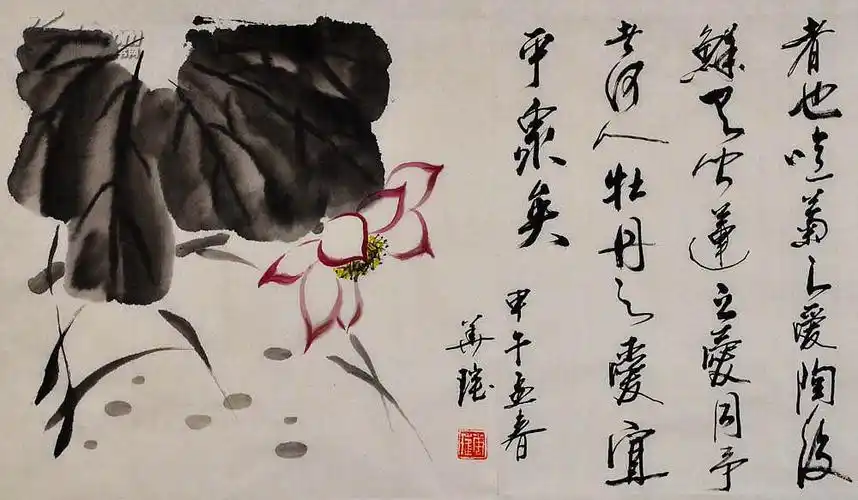 者也噫菊之愛陶後
鮮有闻蓮之愛同予
者何人牡丹之愛宜
乎衆矣
甲午孟春
華